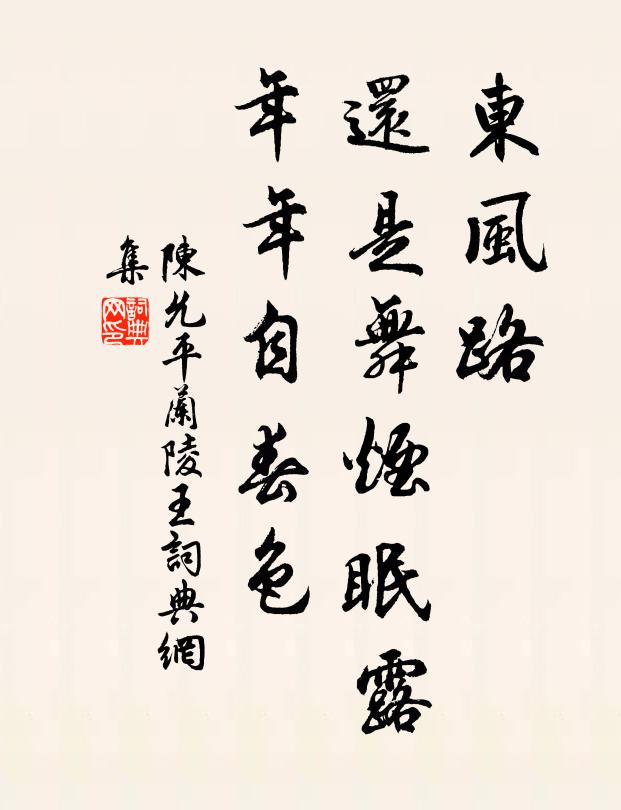 東風路
還是舞煙眠露
年年自春色
陳允平蘭陵王詞典網
集
詞典網印